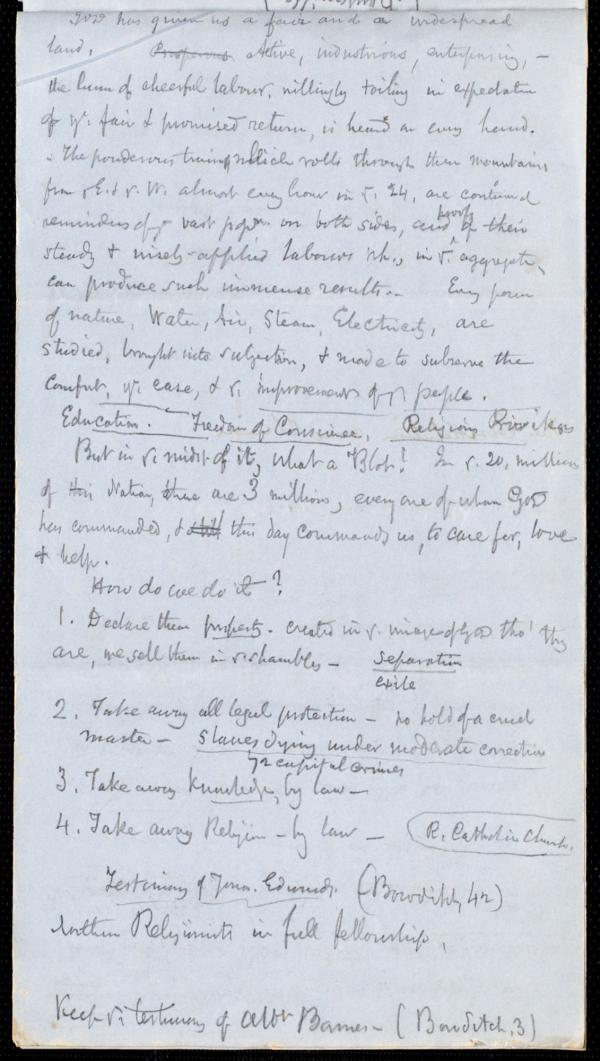 God has given us a fair and a widespread
land. Prosperous Active, industrious, enterprising, –
the hum of cheerful labour, willingly toiling in expectation
of yr. fair & promised return, is heard on every hand.
The ponderous trains, which rolls through these mountains
from E. & W. almost every hour in 24, are continual
reminders of vast popn on both sides, and proof of their
steady & wisely-applied labours wh., in aggregate,
can produce such immense results – Every power
of nature, Water, Air, Steam, Electricity, are
studied, brought into subjection, & made to subserve the
comfort, yr. ease, & improvement of people.
Education. Freedom of Conscience, Religious Privileges
But in midst of it, what a "Blot"! In 20, millions
of this Nation, there are 3 millions, every one of whom God
has commanded, & still this day commands us, to care for, love
& help.
How do we do it?
1. Declare them property. created in image of God tho' they
are, we sell them in shambles – separation
exile
2. Take away all legal protection – no hold of a cruel
master – Slaves dying under moderate correction
72 capital crimes
3. Take away Knowledge, by law –
4. Take away Religion – by law – R. Catholic Church.
Testimony of Jona. Edwards. (Bowditch, 42)
Northern Religionists in full fellowship,
Keep testimony of Albt Barnes – (Bowditch, 3)